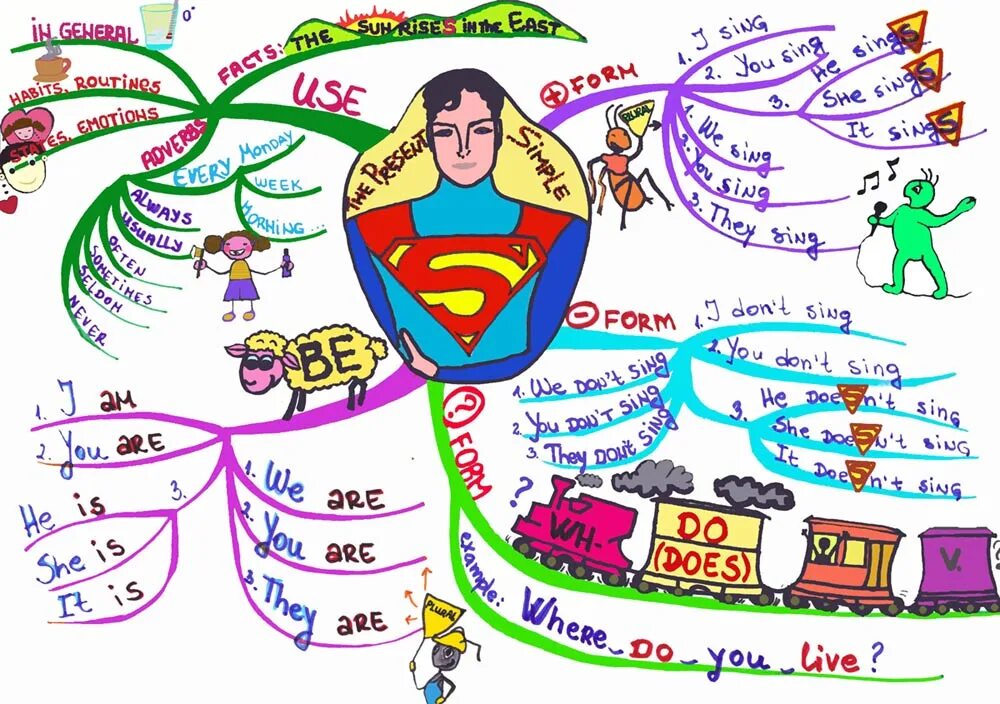 THE PRESENT SIMPLE
USE
FACTS: THE SUN RISES IN THE EAST
IN GENERAL
HABITS, ROUTINES
STATES, EMOTIONS
ADVERBS
EVERY MONDAY
WEEK
MORNING...
ALWAYS
USUALLY
OFTEN
SOMETIMES
SELDOM
NEVER
0°
+ FORM
1. I SING
2. You sing
3. He singS
She singS
It singS
PLURAL
1. We sing
2. You sing
3. They sing
- FORM
1. I don't sing
2. You don't sing
3. He DoeSn't sing
She DoeSn't sing
It DoeSn't sing
1. We DON'T SING
2. You DON'T SING
3. They DON'T SING
? FORM
?
WH-
DO
(DOES)
V.
?
example:
Where_ DO_ you_ live?
BE
1. I AM
2. You ARE
3.
He is
She is
It is
1. We ARE
2. You ARE
3. They ARE
PLURAL
S